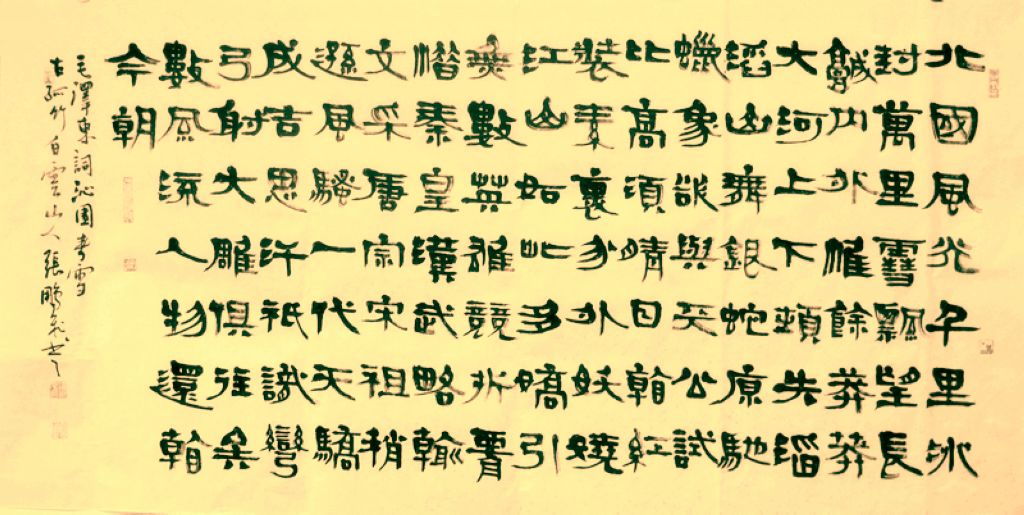 北國風光千里冰
封萬里雪飄望長
城內外惟餘莽莽
大河上下頓失滔
滔山舞銀蛇原馳
蠟象欲與天公試
比高須晴日看紅
裝素裹分外妖嬈
江山如此多嬌引
無數英雄競折腰
惜秦皇漢武略輸
文采唐宗宋祖稍
遜風騷一代天驕
成吉思汗祇識彎
弓射大雕俱往矣
數風流人物還看
今朝
毛澤東詞沁園春雪
古孤竹白雲山人張鵬飛書